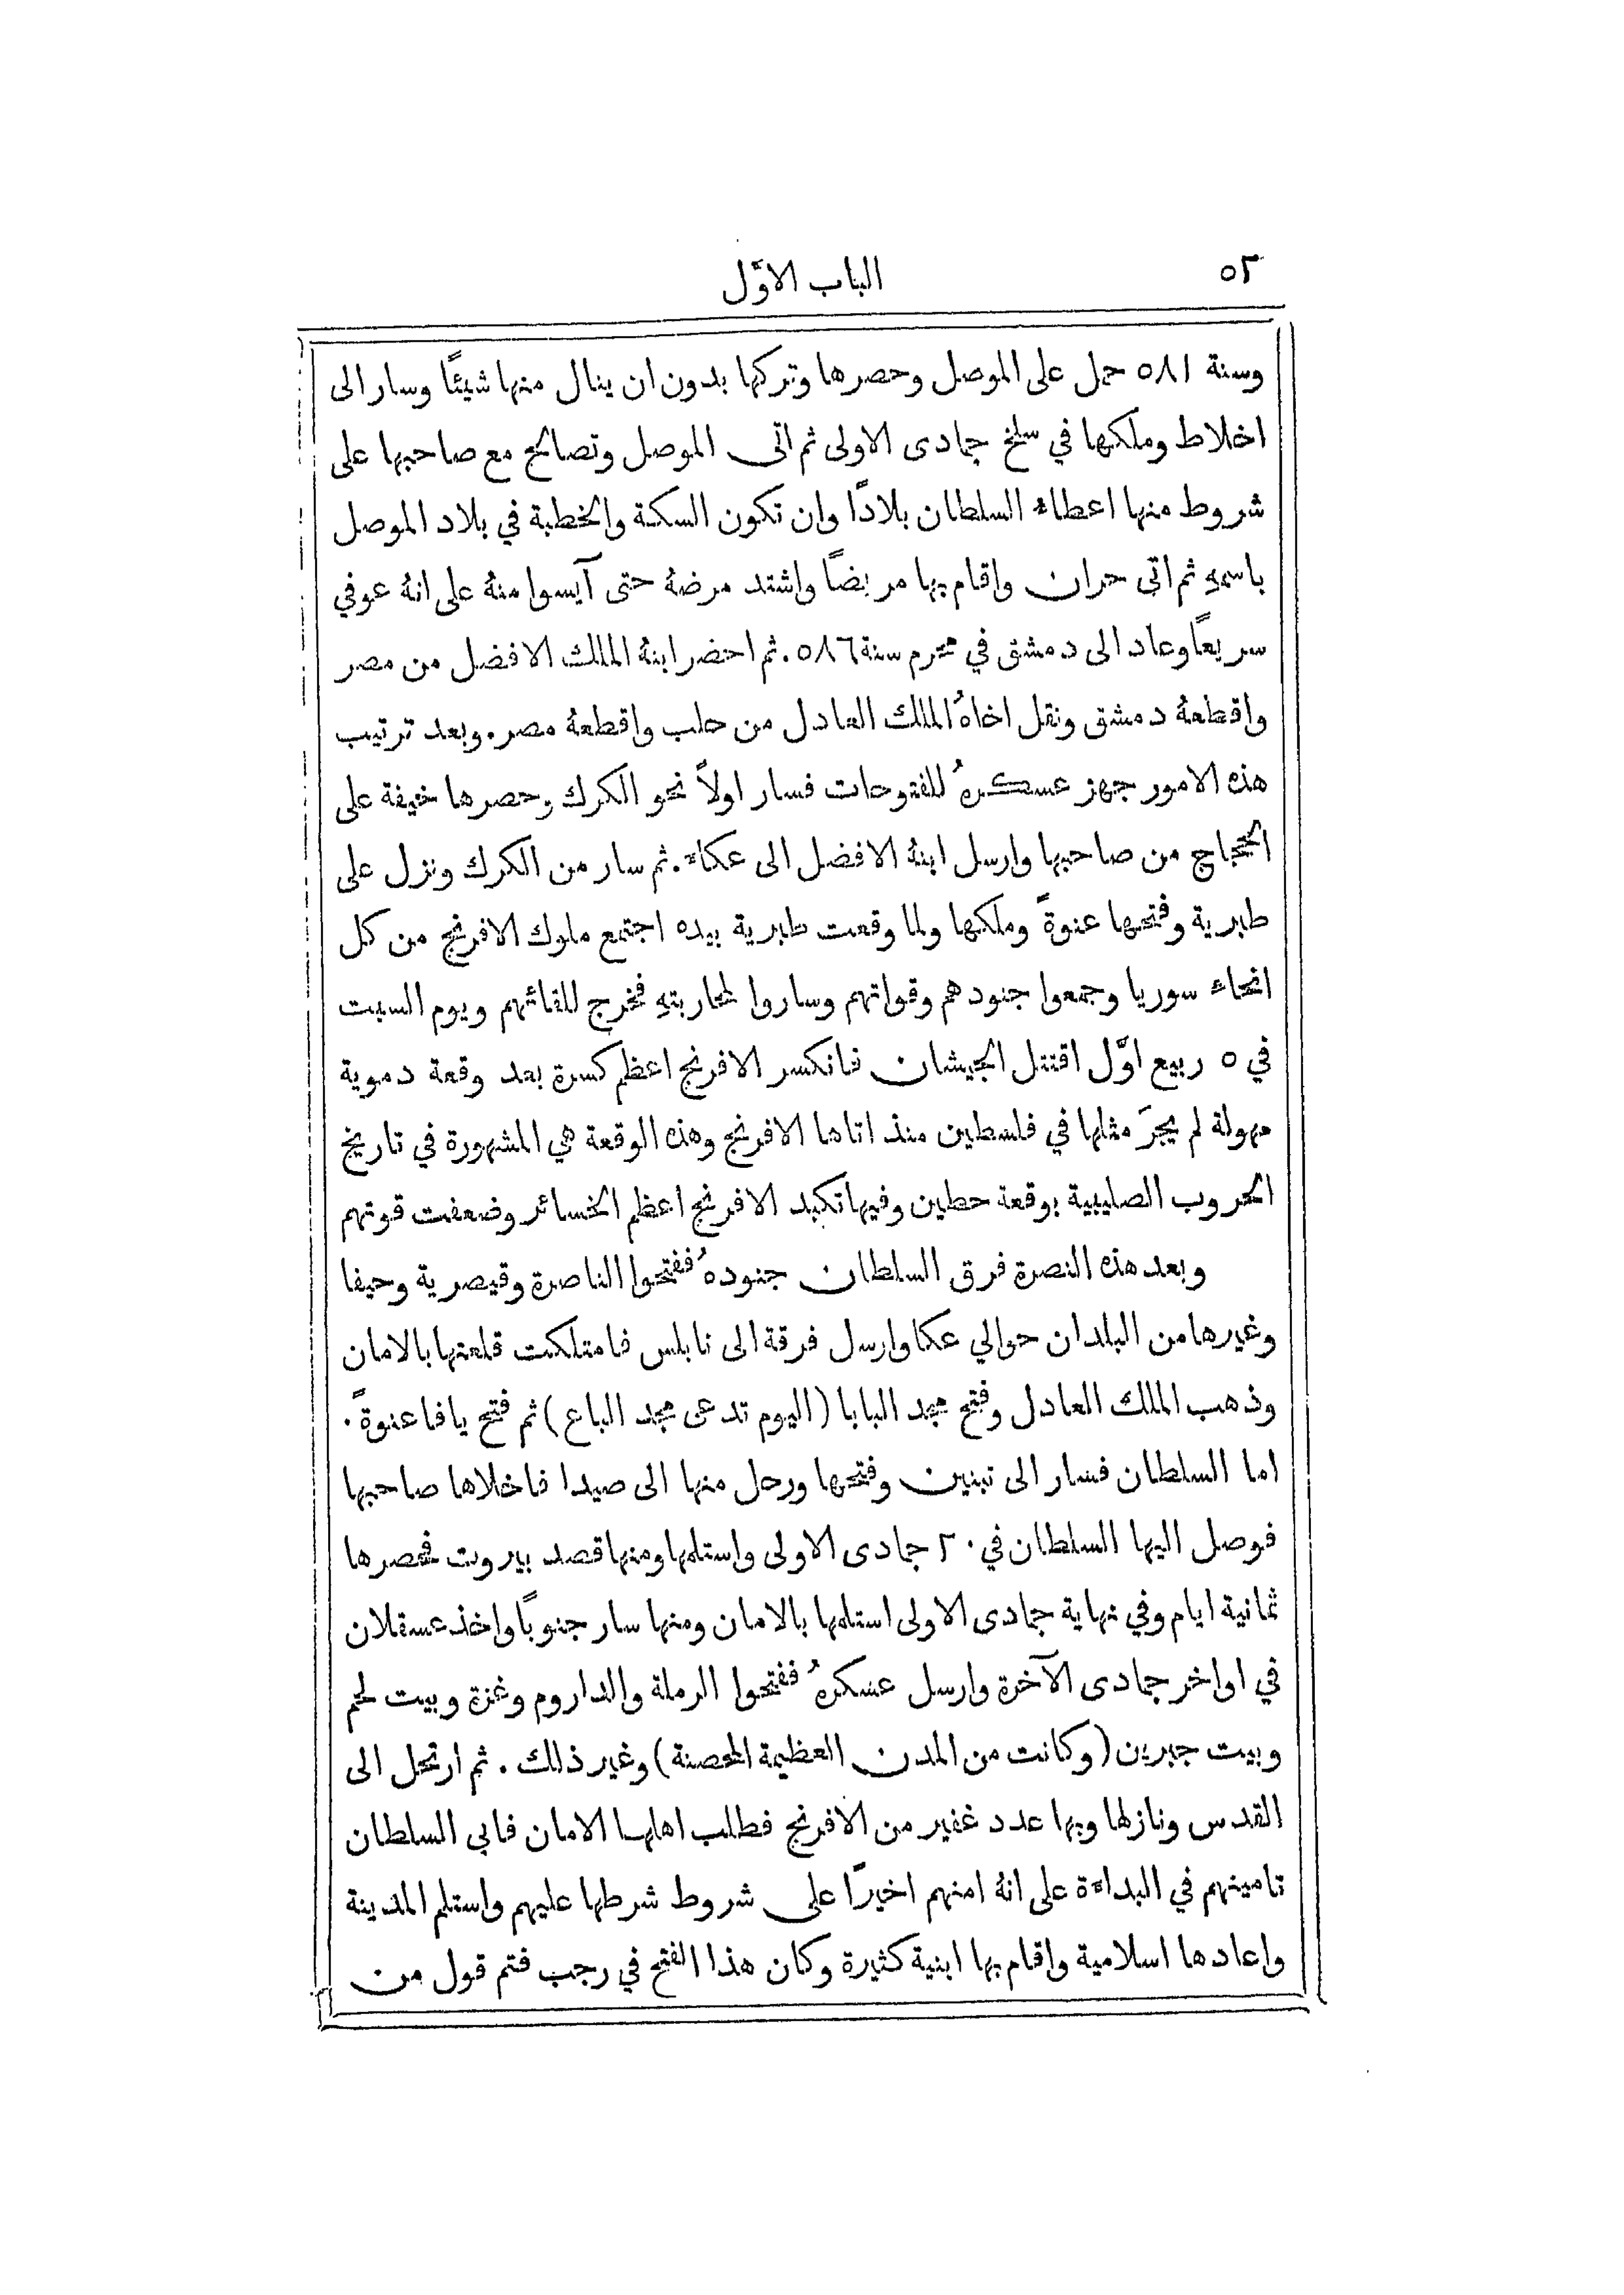 ٥٢
الباب الاوّل
وسنة ٥٨١ حمل على الموصل وحصرها وتركها بدون ان ينال منها شيئًا وسار الى
اخلاط وملكها في سلخ جمادى الاولى ثم اتى الموصل وتصالح مع صاحبها على
شروط منها اعطاء السلطان بلادًا وان تكون السكة والخطبة في بلاد الموصل
باسمهِ ثم اتى حران واقام بها مريضًا واشتد مرضهُ حتى آيسوا منهُ على انهُ عوفي
سريعًا وعاد الى دمشق في محرم سنة ٥٨٦. ثم احضر ابنهُ الملك الافضل من مصر
واقطعهُ دمشق ونقل اخاهُ الملك العادل من حلب واقطعهُ مصر. وبعد ترتيب
هذه الامور جهز عسكرهُ للفتوحات فسار اولاً نحو الكرك وحصرها خيفة على
الحجاج من صاحبها وارسل ابنهُ الافضل الى عكاء. ثم سار من الكرك ونزل على
طبرية وفتحها عنوةً وملكها ولما وقعت طبرية بيده اجتمع ملوك الافرنج من كل
انحاء سوريا وجمعوا جنودهم وقواتهم وساروا لمحاربتهِ فخرج للقائهم ويوم السبت
في ٥ ربيع اوّل اقتتل الجيشان فانكسر الافرنج اعظم كسرة بعد وقعة دموية
مهولة لم يجرَ مثلها في فلسطين منذ اتاها الافرنج وهذه الوقعة هي المشهورة في تاريخ
الحروب الصليبية بوقعة حطين وفيها تكبد الافرنج اعظم الخسائر وضعفت قوتهم
وبعد هذه النصرة فرق السلطان جنودهُ ففتحوا الناصرة وقيصرية وحيفا
وغيرها من البلدان حوالي عكا وارسل فرقة الى نابلس فامتلكت قلعتها بالامان
وذهب الملك العادل وفتح مجد البابا (اليوم تدعى مجد الباع) ثم فتح يافا عنوةً.
اما السلطان فسار الى تبنين وفتحها ورحل منها الى صيدا فاخلاها صاحبها
فوصل اليها السلطان في ٢٠ جمادى الاولى واستلمها ومنها قصد بيروت فحصرها
ثمانية ايام وفي نهاية جمادى الاولى استلمها بالامان ومنها سار جنوبًا واخذ عسقلان
في اواخر جمادى الآخرة وارسل عسكرهُ ففتحوا الرملة والداروم وغزة وبيت لحم
وبيت جبرين (وكانت من المدن العظيمة المحصنة) وغير ذلك. ثم ارتحل الى
القدس ونازلها وبها عدد غفير من الافرنج فطلب اهلها الامان فابى السلطان
تامينهم في البداءة على انهُ امنهم اخيرًا على شروط شرطها عليهم واستلم المدينة
واعادها اسلامية واقام بها ابنية كثيرة وكان هذا الفتح في رجب فتم قول من